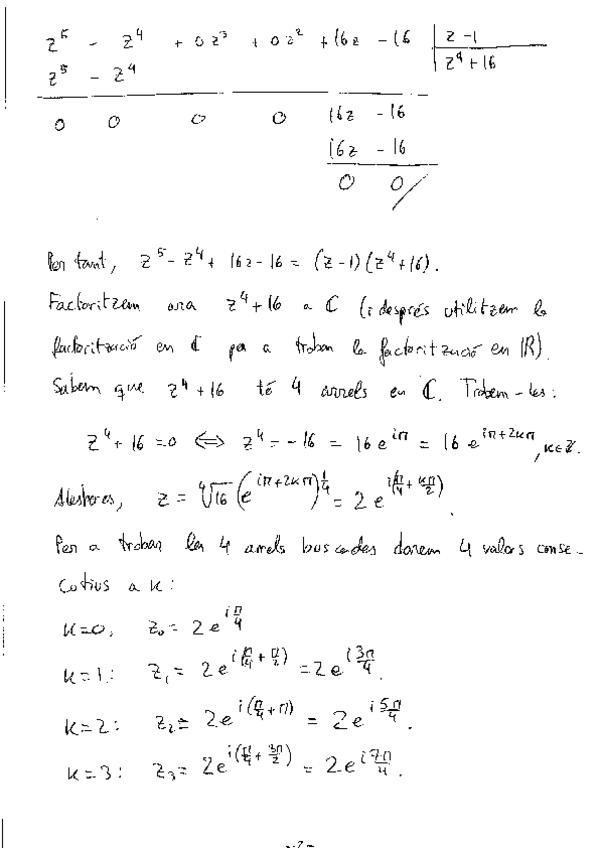 z⁵ - z⁴ + 0z³ + 0z² + 16z - 16 | z - 1
z⁵ - z⁴ z⁴ + 16
0 0 0 0 16z - 16
16z - 16
0 0/
Per tant, z⁵ - z⁴ + 16z - 16 = (z-1)(z⁴+16).
Factoritzem ara z⁴+16 a ℂ (i després utilitzem la
factorització en ℂ per a trobar la factorització en ℝ).
Sabem que z⁴+16 té 4 arrels en ℂ. Trobem-les:
z⁴+16=0 ⟺ z⁴=-16 = 16e^{iπ} = 16e^{iπ+2kπ}, k∈ℤ.
Aleshores, z = ⁴√16 (e^{iπ+2kπ})^{1/4} = 2e^{i(π/4+kπ/2)}.
Per a trobar les 4 arrels buscades darem 4 valors conse-
cutius a k:
k=0, z₀=2e^{iπ/4}
k=1: z₁=2e^{i(π/4+π/2)}=2e^{i3π/4}.
k=2: z₂=2e^{i(π/4+π)} = 2e^{i5π/4}.
k=3: z₃=2e^{i(π/4+3π/2)} = 2e^{i7π/4}.